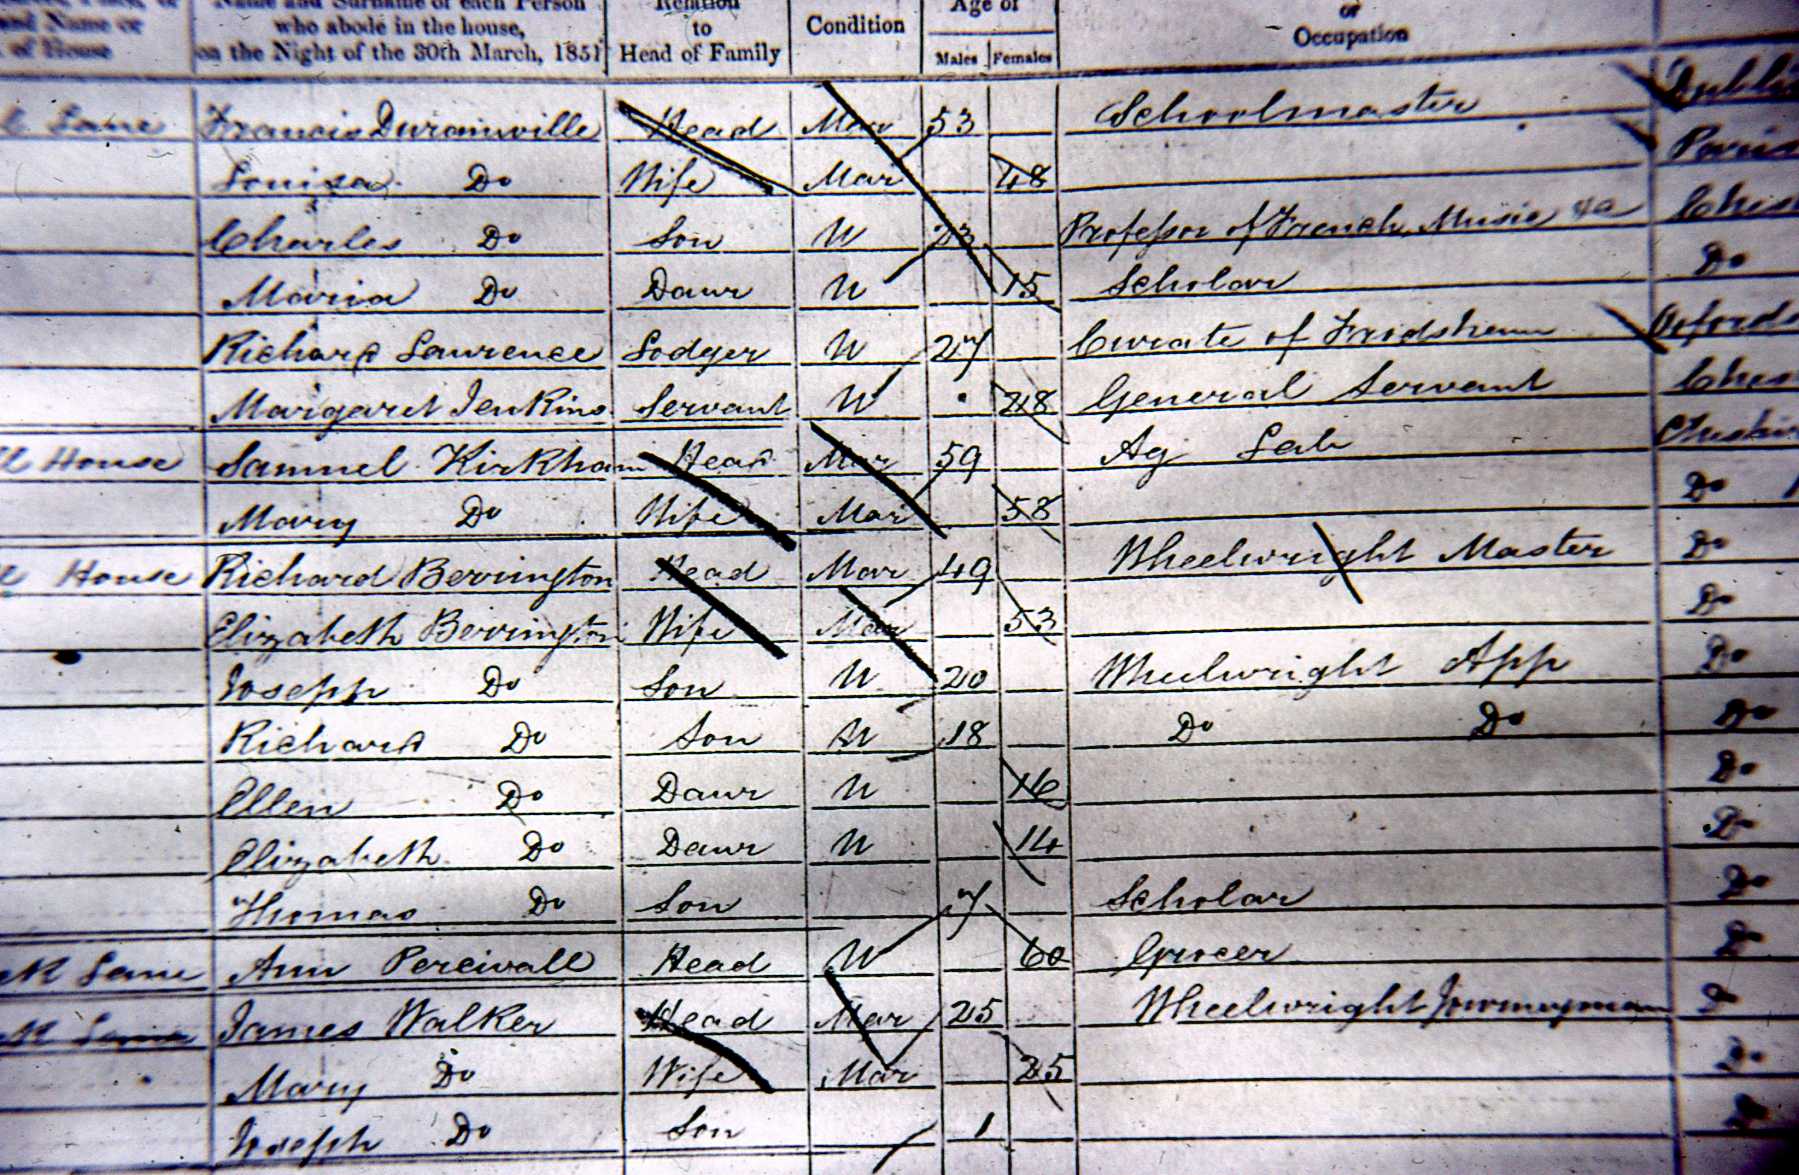 Name and Surname of each Person Relation Age of or
and Name or who abode in the house, to Condition Occupation
of House on the Night of the 30th March, 1851 Head of Family Males Females
Lane Francis Durainville Head Mar 53 Schoolmaster
Louisa Do Wife Mar 48
Charles Do Son U 23 Professor of French, Music &c
Maria Do Daur U 15 Scholar Do
Richard Lawrence Lodger U 27 Curate of Frodsham
Margaret Jenkins Servant U 28 General Servant
House Samuel Kirkham Head Mar 59 Ag Lab
Mary Do Wife Mar 58 Do
House Richard Berrington Head Mar 49 Wheelwright Master Do
Elizabeth Berrington Wife Mar 53 Do
Joseph Do Son U 20 Wheelwright App Do
Richard Do Son U 18 Do Do Do
Ellen Do Daur U 16 Do
Elizabeth Do Daur U 14 Do
Thomas Do Son 7 Scholar Do
Lane Ann Percivall Head U 60 Grocer Do
Lane James Walker Head Mar 25 Wheelwright Journeyman Do
Mary Do Wife Mar 25 Do
Joseph Do Son 1 Do